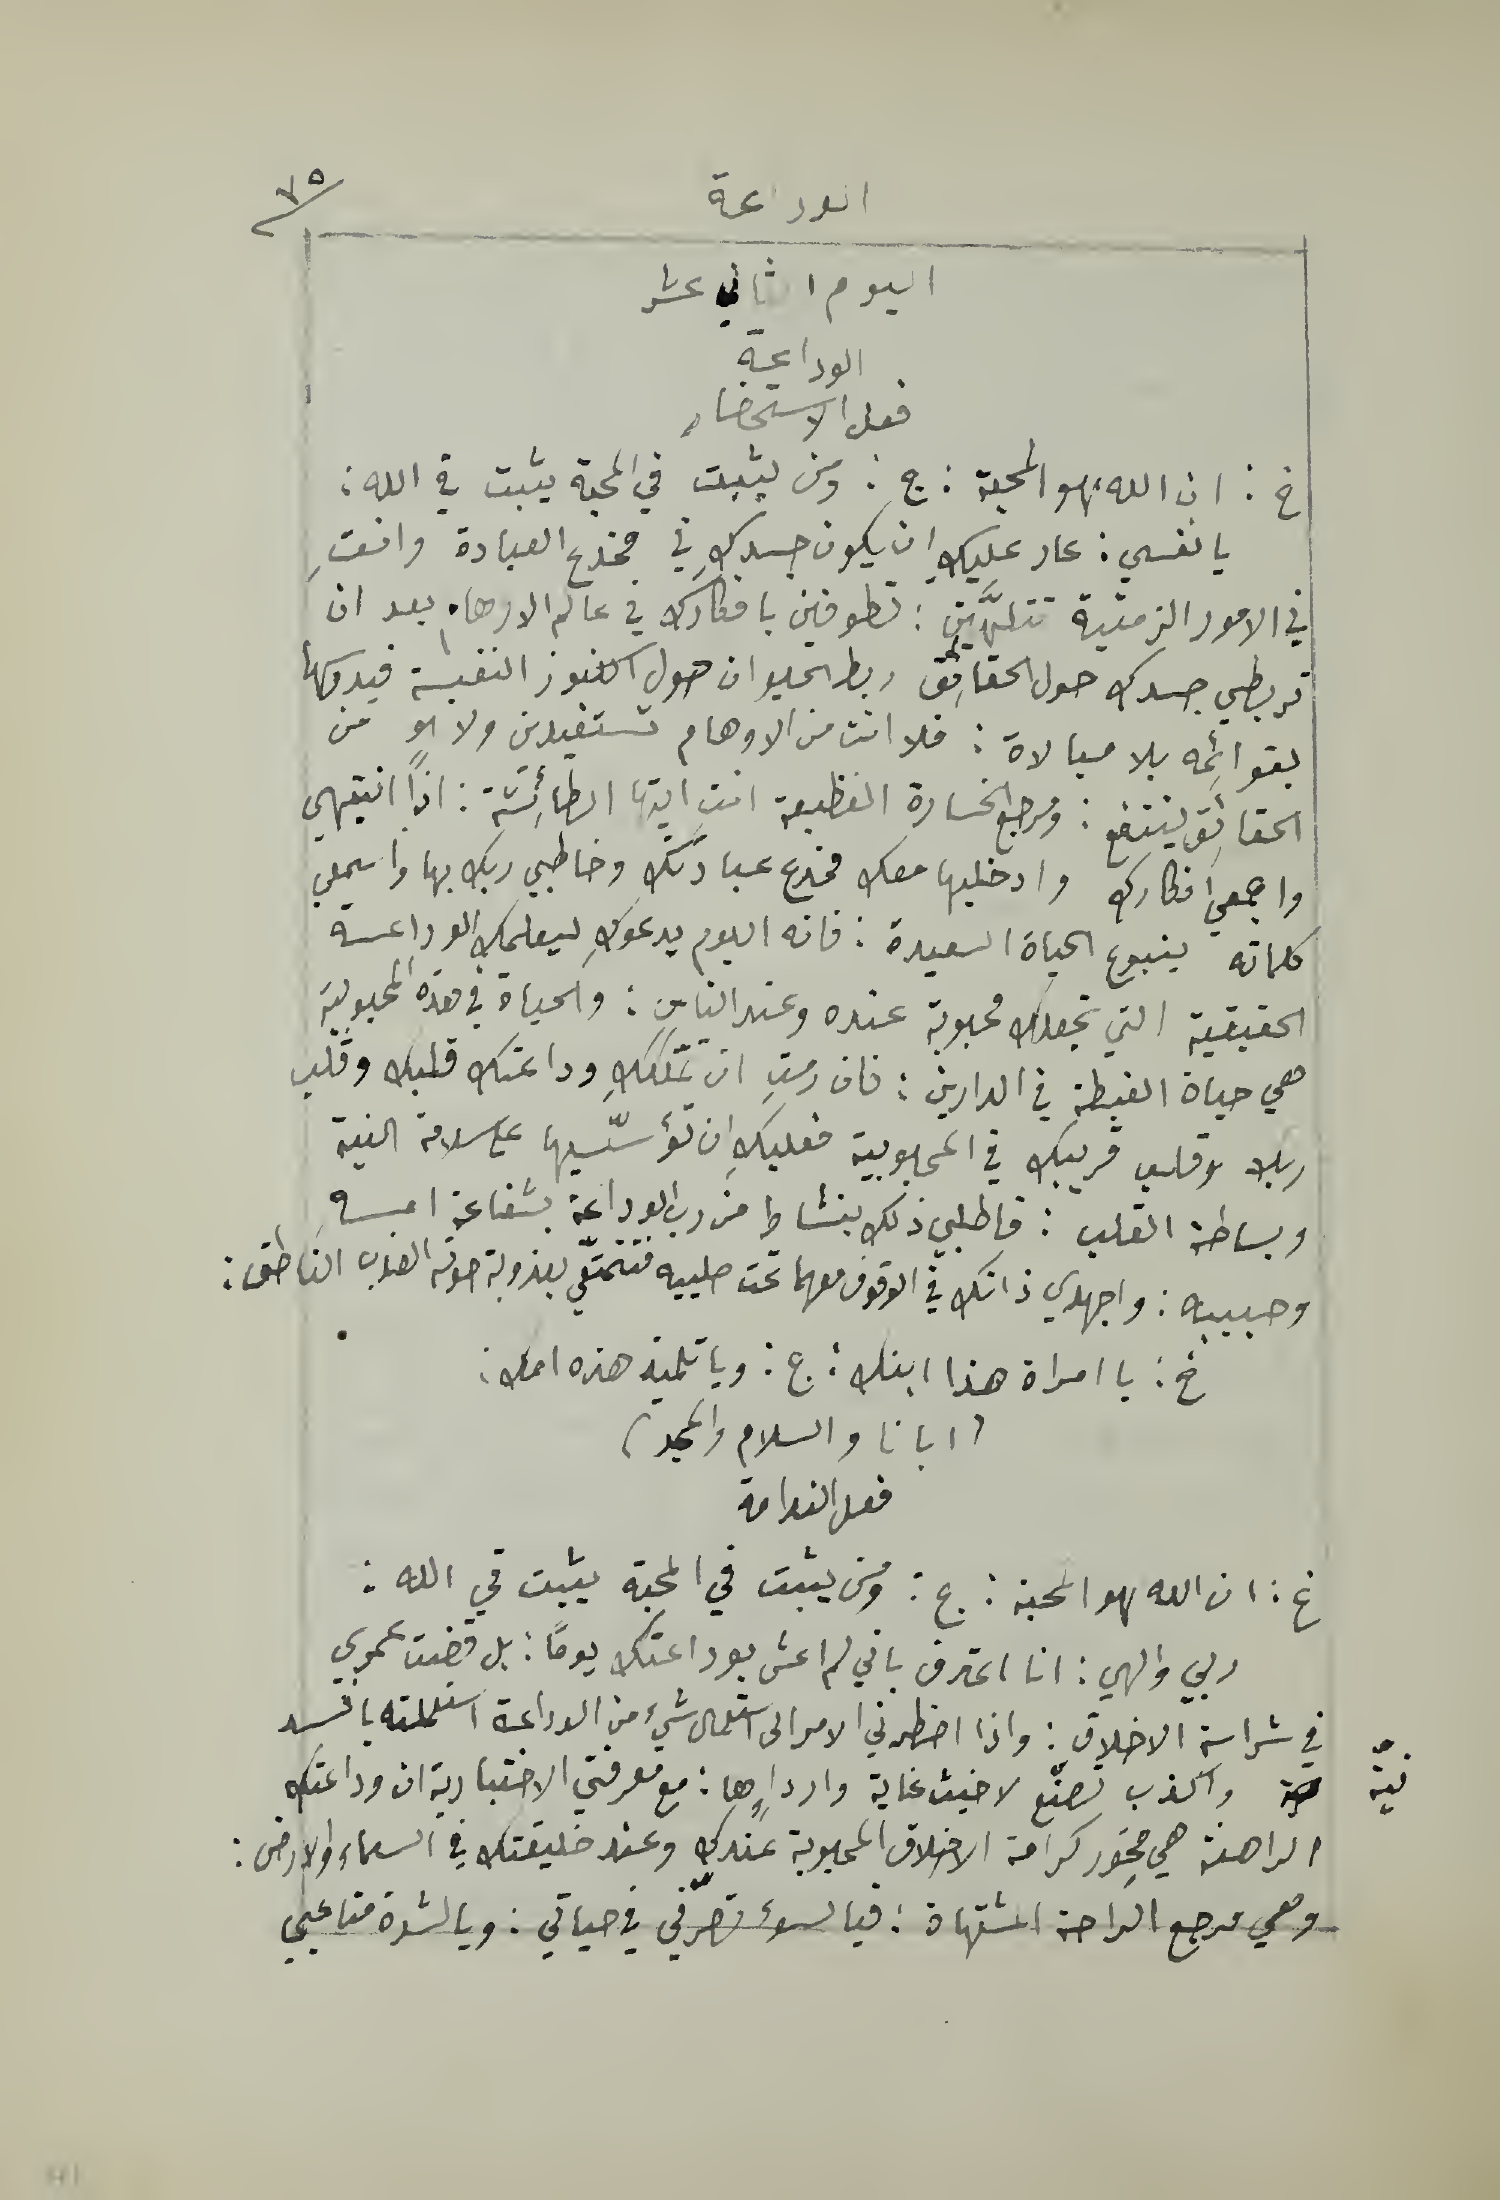 الوداعة
٧٥
اليوم الثاني عشر
الوداعة
فعل الاستحضار
خ : ان الله هو المحبة : ج : ومن يثبت في المحبة يثبت في الله :
يا نفسي : عار عليكِ ان يكون جسدكِ في مخدع العبادة وانتِ
في الامور الزمنية تتلهَّين : تطوفين بافكارك في عالم الاوهام بعد ان
تربطي جسدك حول الحقائق ربط الحيوان حول الكنوز النفيسة فيدوسها
بقوائمه بلا مبالاة : فلا انت من الاوهام تستفيدين ولا هو من
الحقائق ينتفع : ومرجع الخسارة الفظيعة انتِ ايتها الطائشة : اذًا انتبهي
واجمعي افكارك وادخليها معك مخدع عبادتك وخاطبي ربك بها واسمعي
كلماته ينبوع الحياة السعيدة : فانه اليوم يدعوكِ ليعلمك الوداعة
الحقيقية التي تجعلك محبوبة عنده وعند الناس : والحياة في هذه المحبوبية
هي حياة الغبطة في الدارين : فان رمتِ ان تملككِ وداعتك قلبك وقلب
ربك وقلب قريبك في المحبوبية فعليكِ ان تؤسّسيها على سلامة النية
وبساطة القلب : فاطلبي ذلك بنشاط من رب الوداعة بشفاعة امه
وحبيبه : واجهدي ذاتك في الوقوف معهما تحت صليبه فتتمتّعي بعذوبة صوته العذب الناطق :
خ : يا امراة هذا ابنك : ج : ويا تلميذ هذه امك :
( ابانا والسلام والمجد )
فعل الندامة
خ : ان الله هو المحبة : ج : ومن يثبت في المحبة يثبت في الله :
ربي والهي : انا اعترف باني لم اعش بوداعتك يومًا : بل قضيت عمري
في شراسة الاخلاق : واذا اضطرني الامر الى استعمال شيء من الوداعة استعملته بافسد
نيّة واكذب تصنّع لاخبث غاية وارداها : مع معرفتي الاختبارية ان وداعتك
الراهنة هي محور كرامة الاخلاق المحبوبة عندك وعند خليقتك في السماء والارض :
وهي مرجع الراحة المشتهاة : فيا لسوء تصرّفي في حياتي : ويا لشدة متاعبي